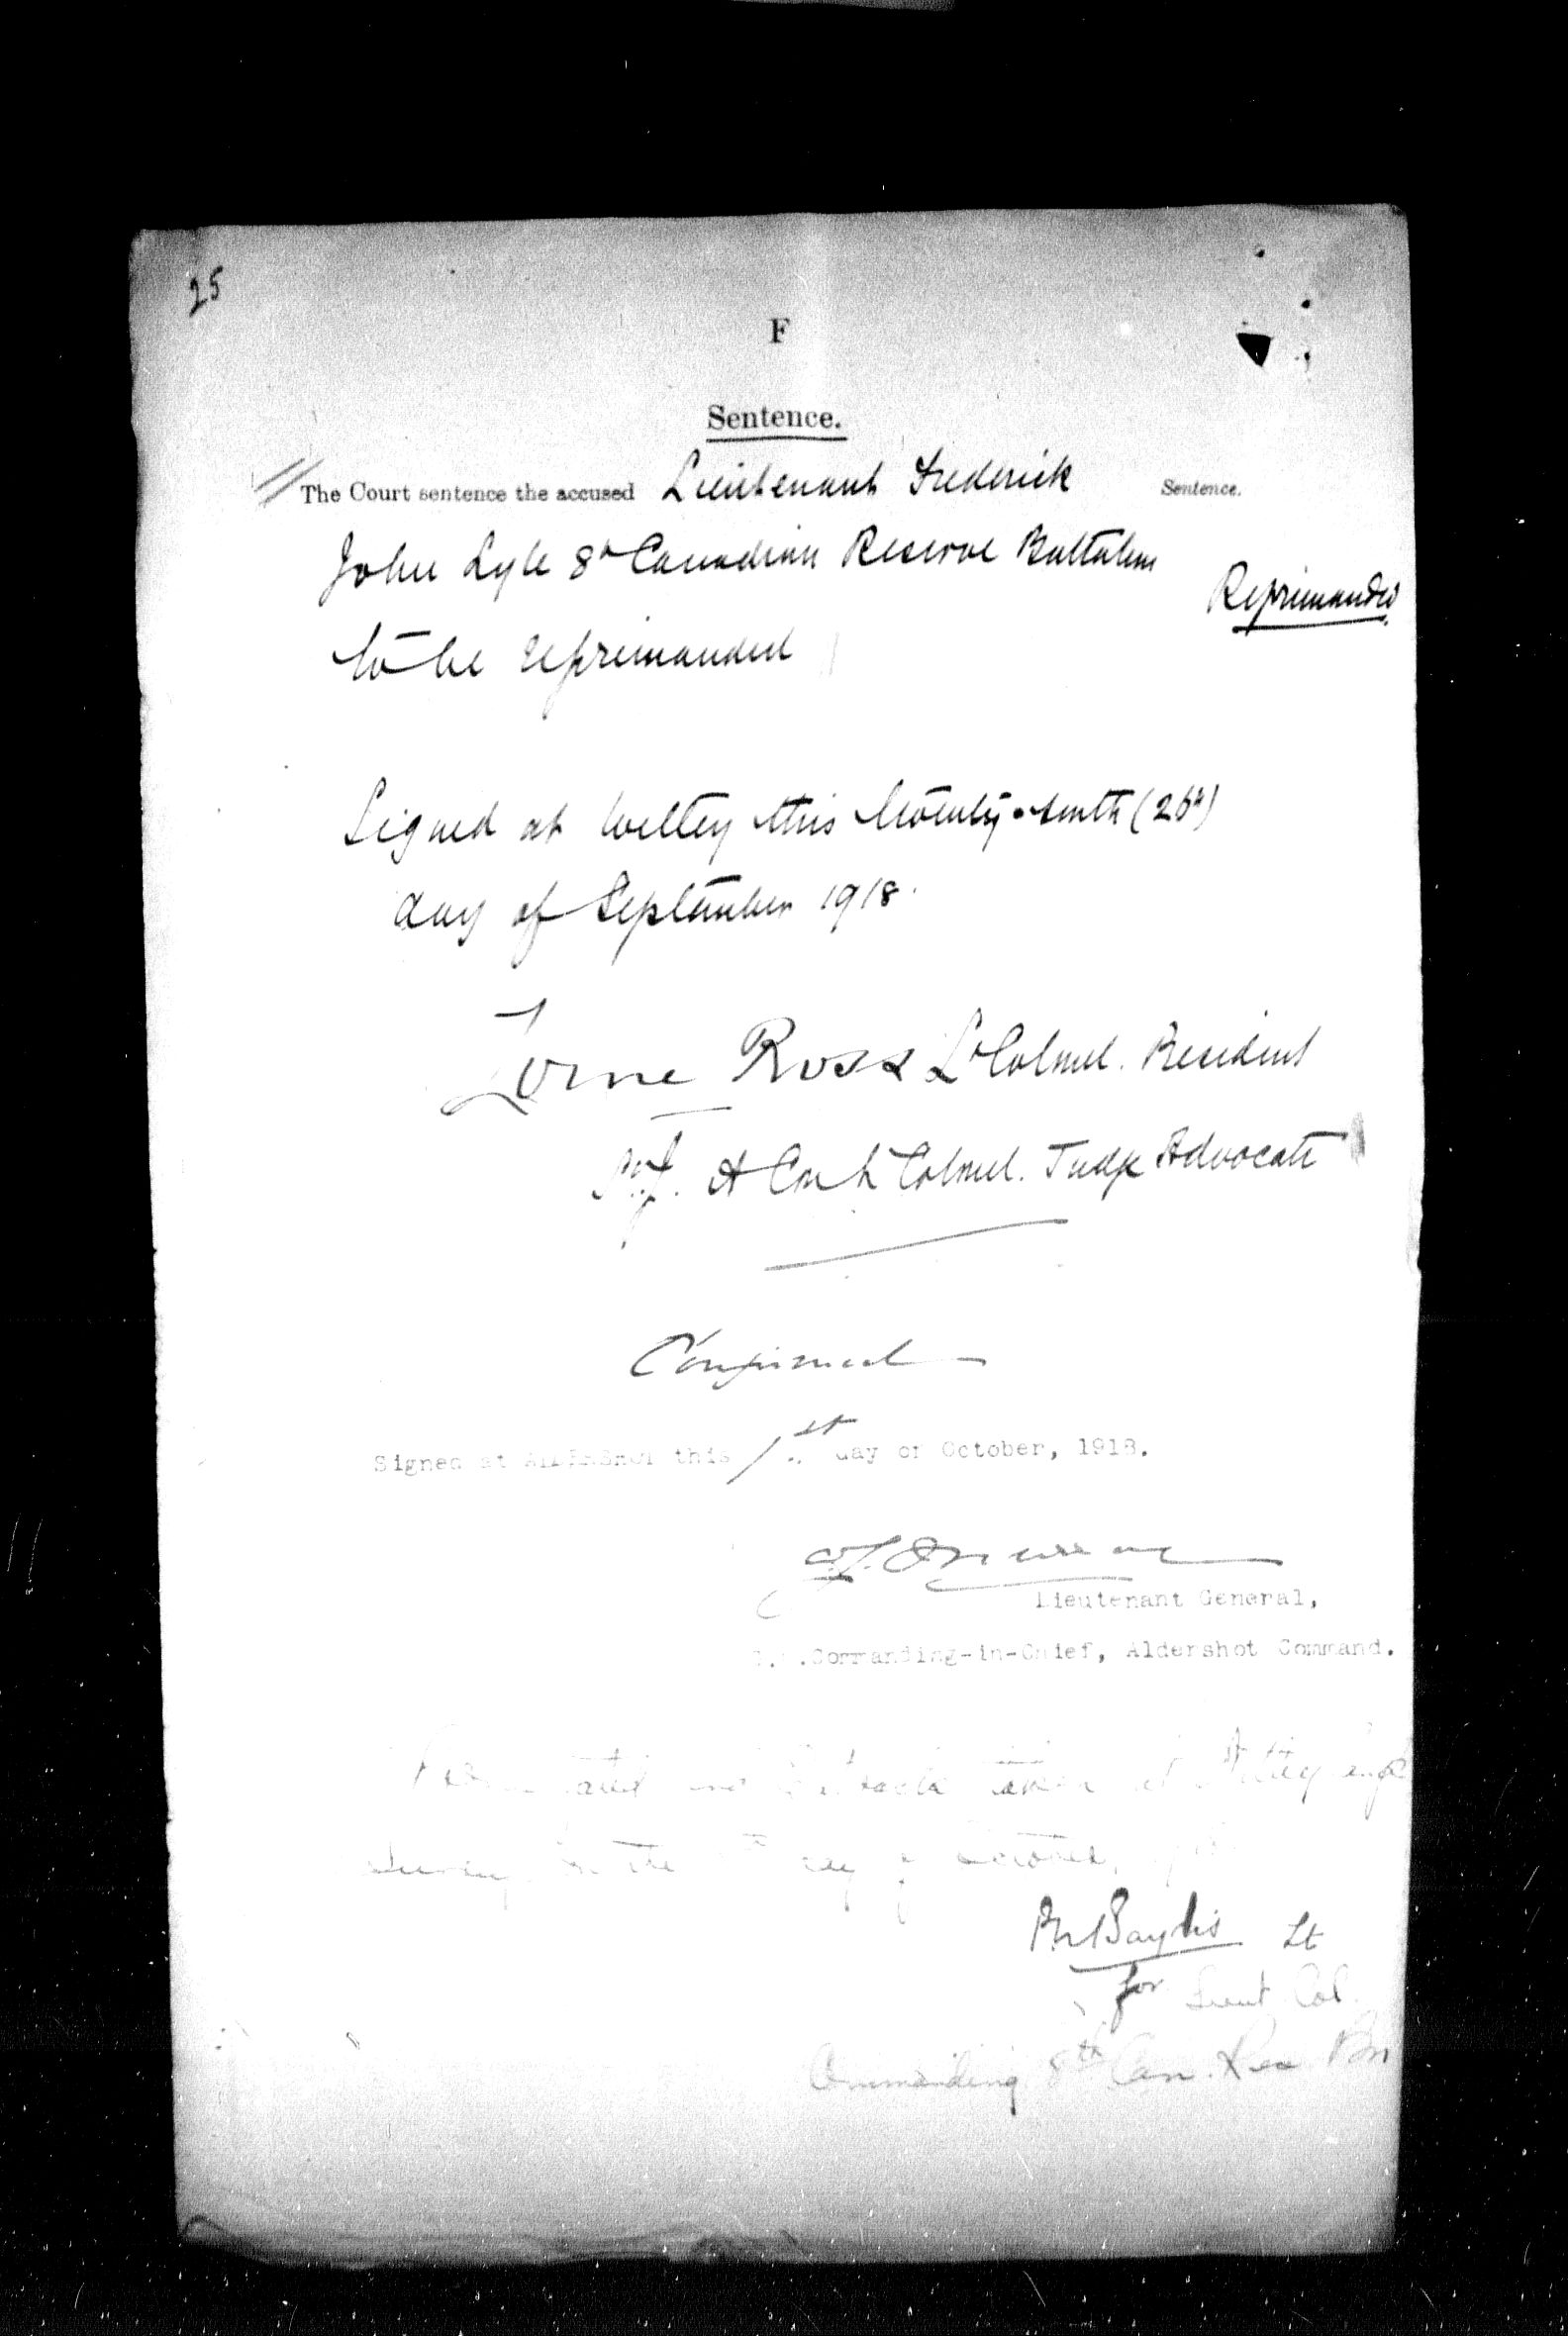 25
F
Sentence.
The Court sentence the accused Lieutenant Frederick
Sentence.
John Lyle 8th Canadian Reserve Battalion
Reprimanded
to be reprimanded
Signed at Witley this twenty-sixth (26th)
day of September 1918.
Lorne Ross Lt Colonel. President
Lt Colonel. Judge Advocate
Confirmed
Signed at ALDERSHOT this 1st day of October, 1918.
Lieutenant General,
Commanding-in-Chief, Aldershot Command.
Promulgated and Extracts taken at Witley
Surrey on the day of October,
Baylis Lt
for Lieut Col.
Commanding 8th Can. Res Bn